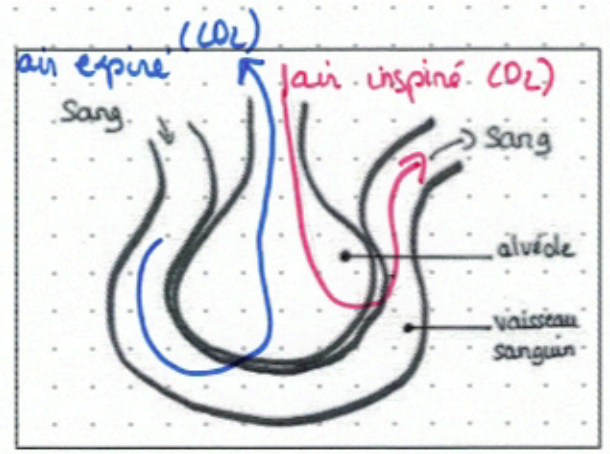 (CO2)
air expiré
air inspiré (O2)
Sang
Sang
alvéole
vaisseau
sanguin